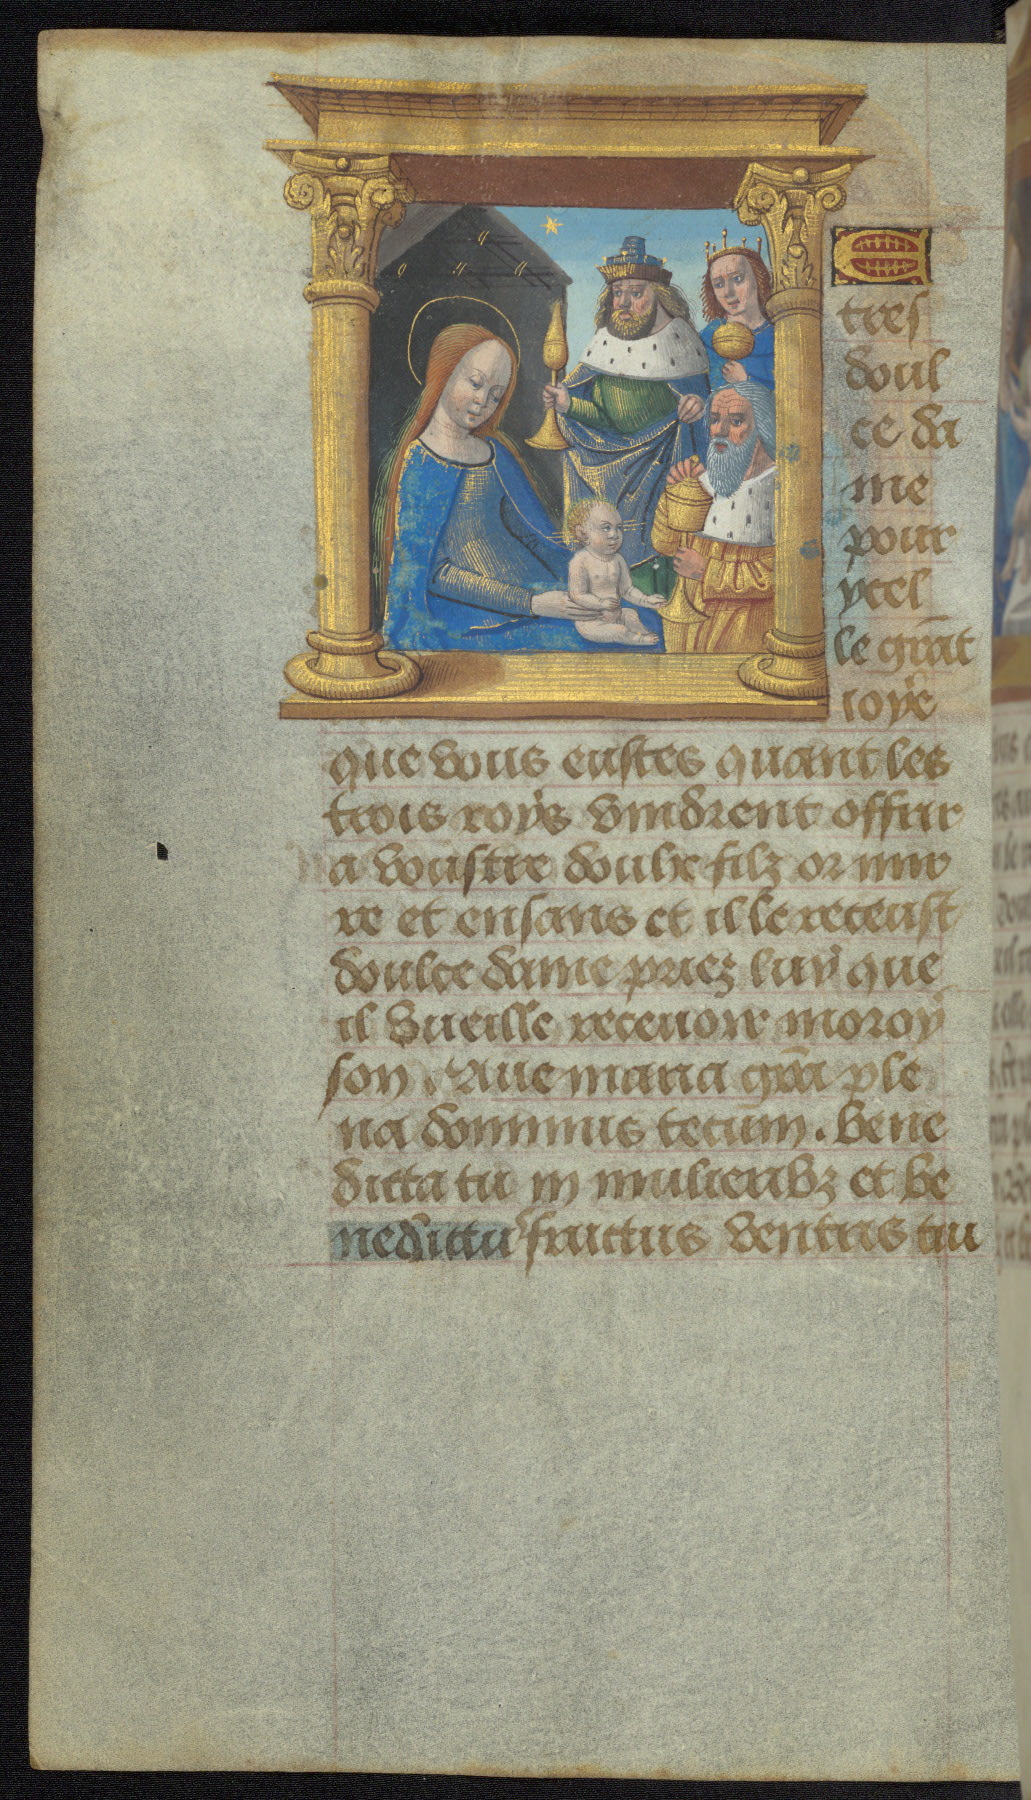 E
tres
doul
ce da
me
pour
ycel
le grāt
ioye
que vous eustes quant les
trois roys vindrent offrir
a voustre doulx filz or mir
re et ensans et il le receust
doulce dame priez luy que
il vueille recevoir moroy
son. Ave maria grā ple
na dominus tecum. bene
dicta tu in mulieribz et be
nedictus fructus ventris tui